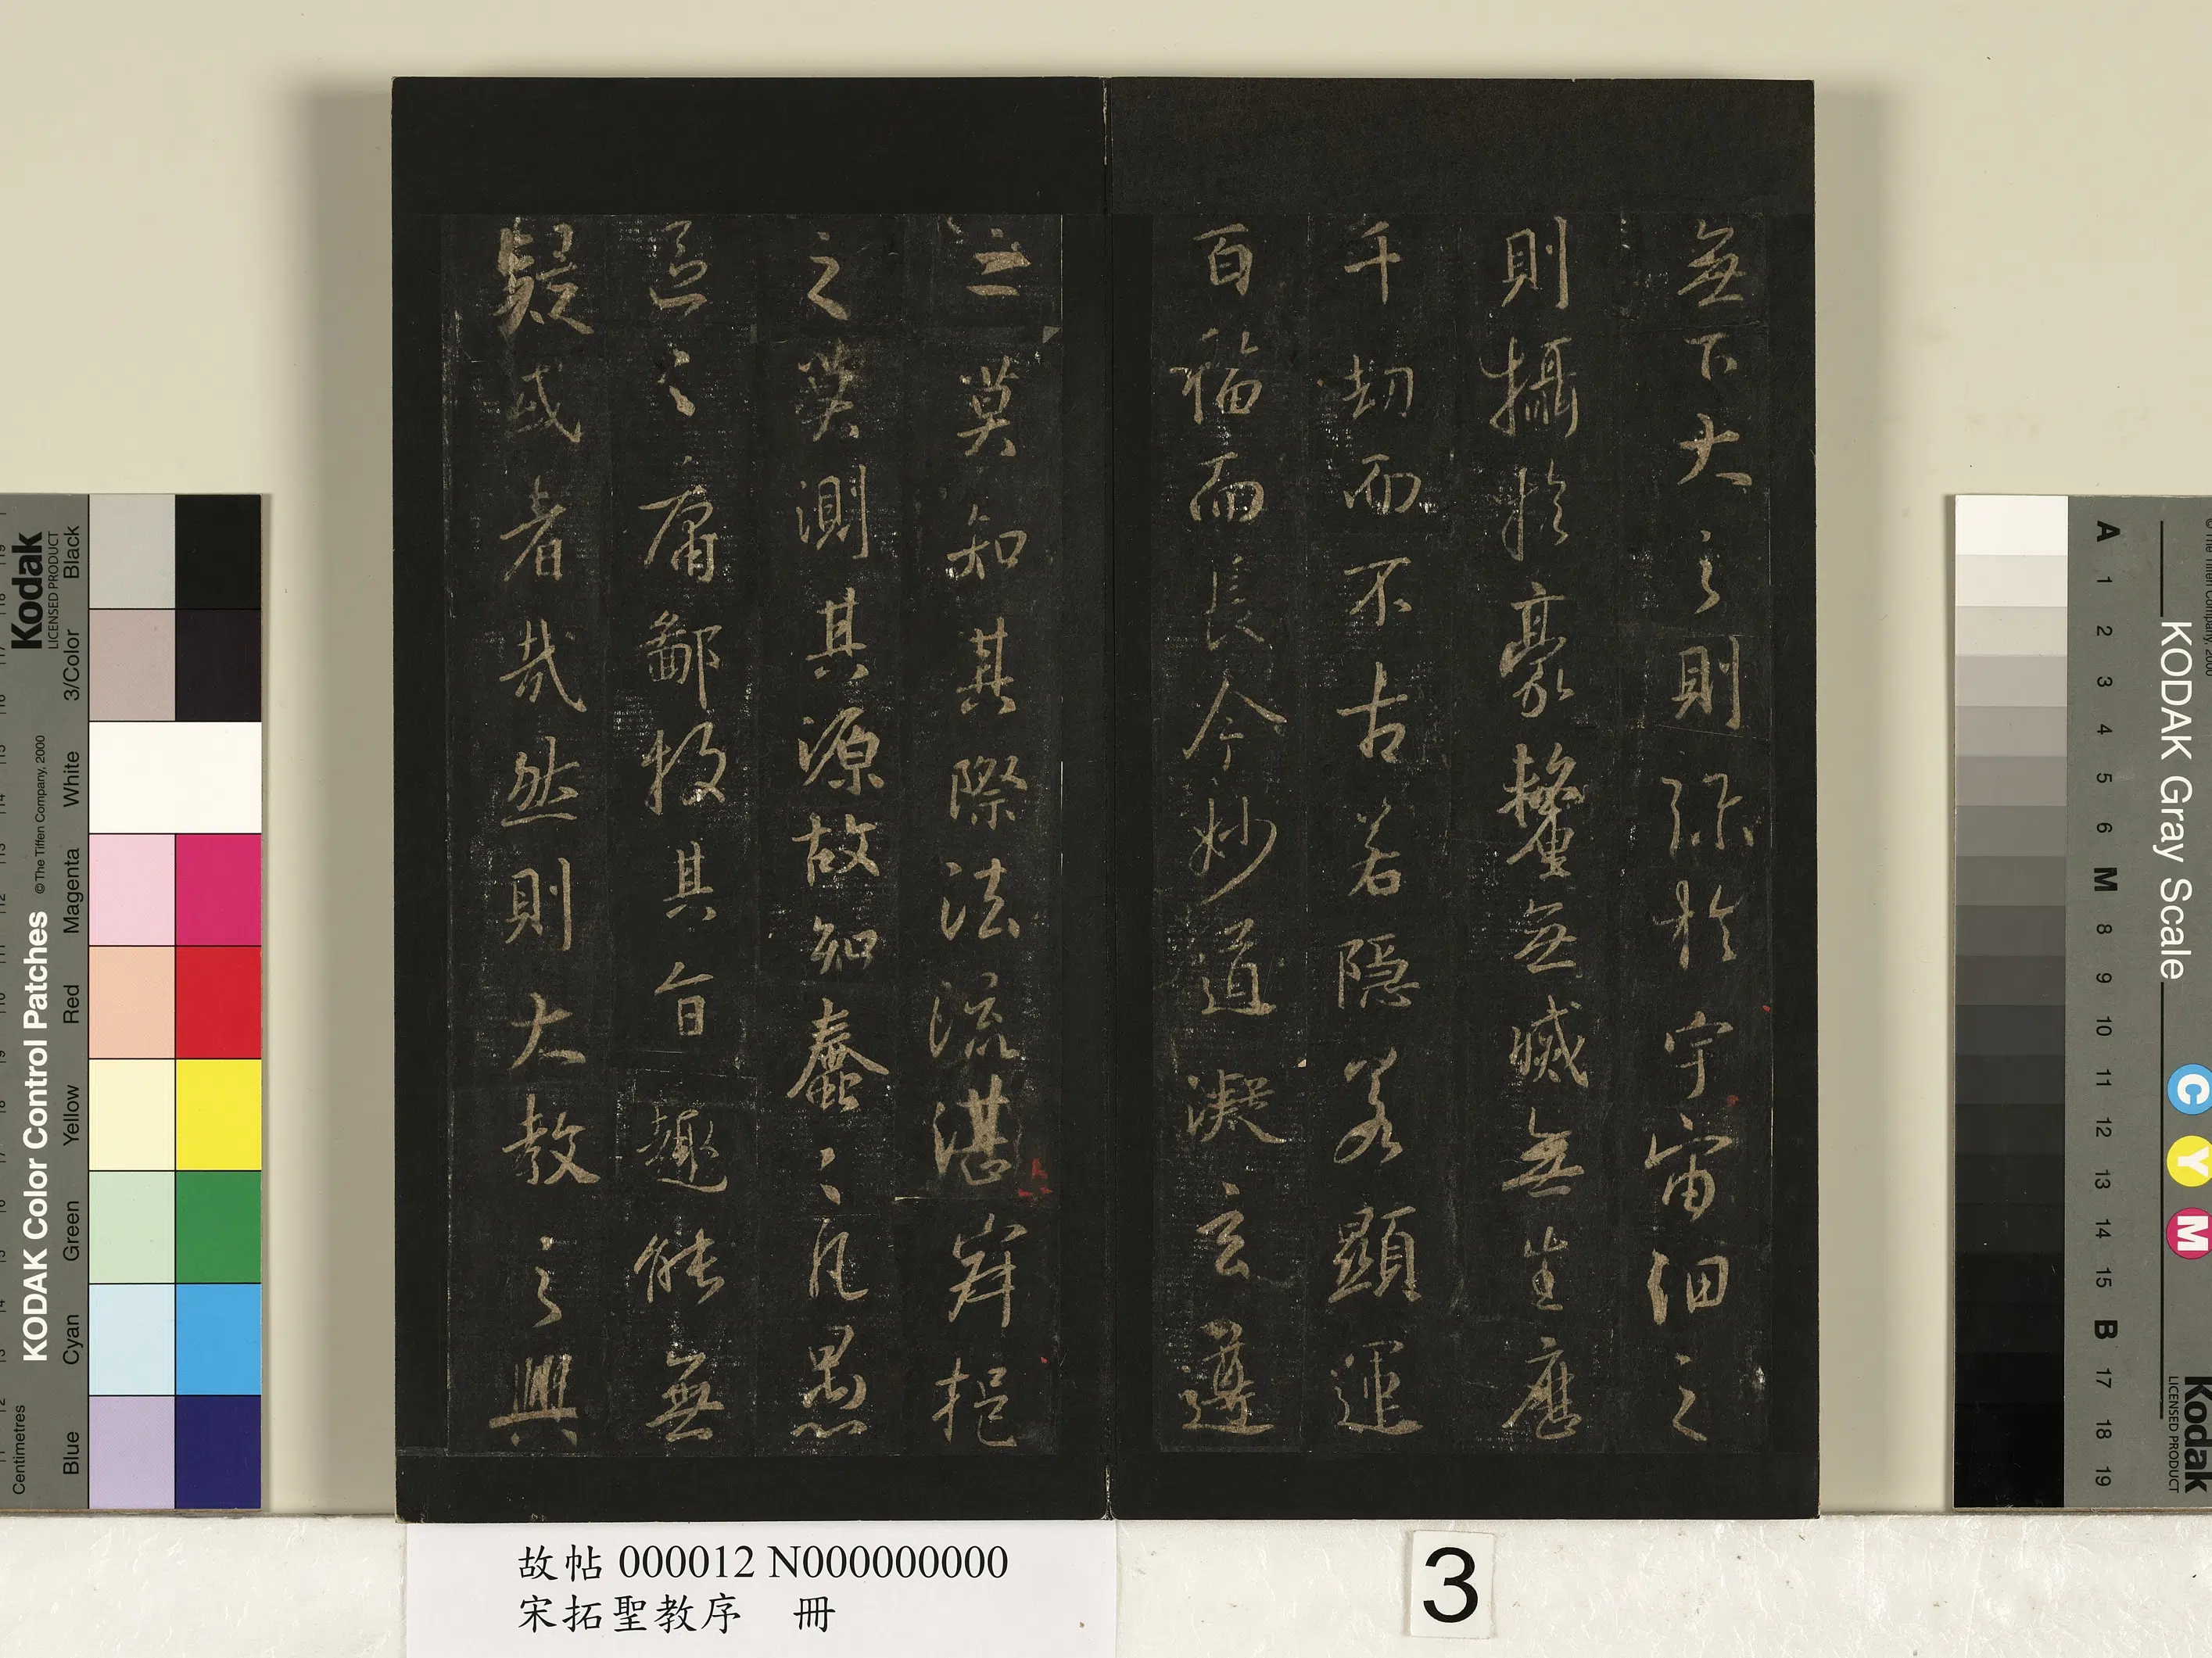 無下大之則弥於宇宙細之
則攝於豪釐無滅無生歷
千劫而不古若隱若顯運
百福而長今妙道凝玄遵
之莫知其際法流湛寂挹
之莫測其源故知蠢〻凡愚
區〻庸鄙投其旨趣能無
疑或者哉然則大教之興
故帖 000012 N000000000
宋拓聖教序 冊
3
KODAK Color Control Patches
© The Tiffen Company, 2000
Kodak
LICENSED PRODUCT
Centimetres
Blue
Cyan
Green
Yellow
Magenta
Red
White
3/Color
Black
KODAK Gray Scale
Kodak
LICENSED PRODUCT
C
Y
M
A
1
2
3
4
5
6
M
8
9
10
11
12
13
14
15
B
17
18
19